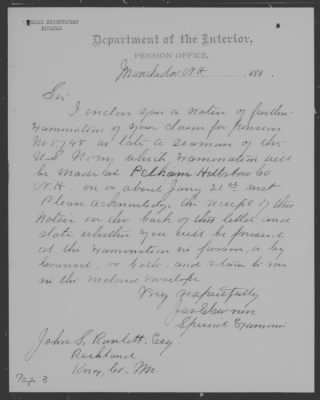 SPECIAL EXAMINATION
DIVISION.
Department of the Interior,
PENSION OFFICE,
Manchester N.H. 188 .
Sir
I enclose you a notice of further
examination of your claim for pension
No 5745 as late a seaman of the
U.S. Navy which examination will
be made at Pelham Hillsboro Co
N.H. on or about Jany 21st inst
Please acknowledge the receipt of this
notice on the back of this letter and
state whether you will be present
at the examination in person, or by
Counsel, or both, and return to me
in the inclosed envelope
Very respectfully
Special Examiner
John S. Rantlett Esq.
Rockland
Knox Co. Me.
Page 3